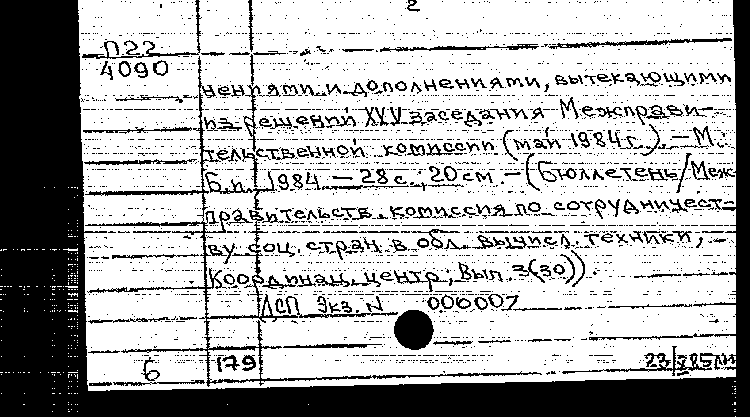 2
П22
4090
нениями и дополнениями, вытекающими
из решений XXV заседания Межправи-
тельственной комиссии (май 1984г.). – М.:
Б.и. 1984 – 28 с.; 20 см. – (Бюллетень/Меж-
правительств. комиссия по сотрудничест-
ву соц. стран в обл. вычисл. техники,
Координац. центр; Вып. 3(30)).
ДСП Экз. N 000007
6 179 23